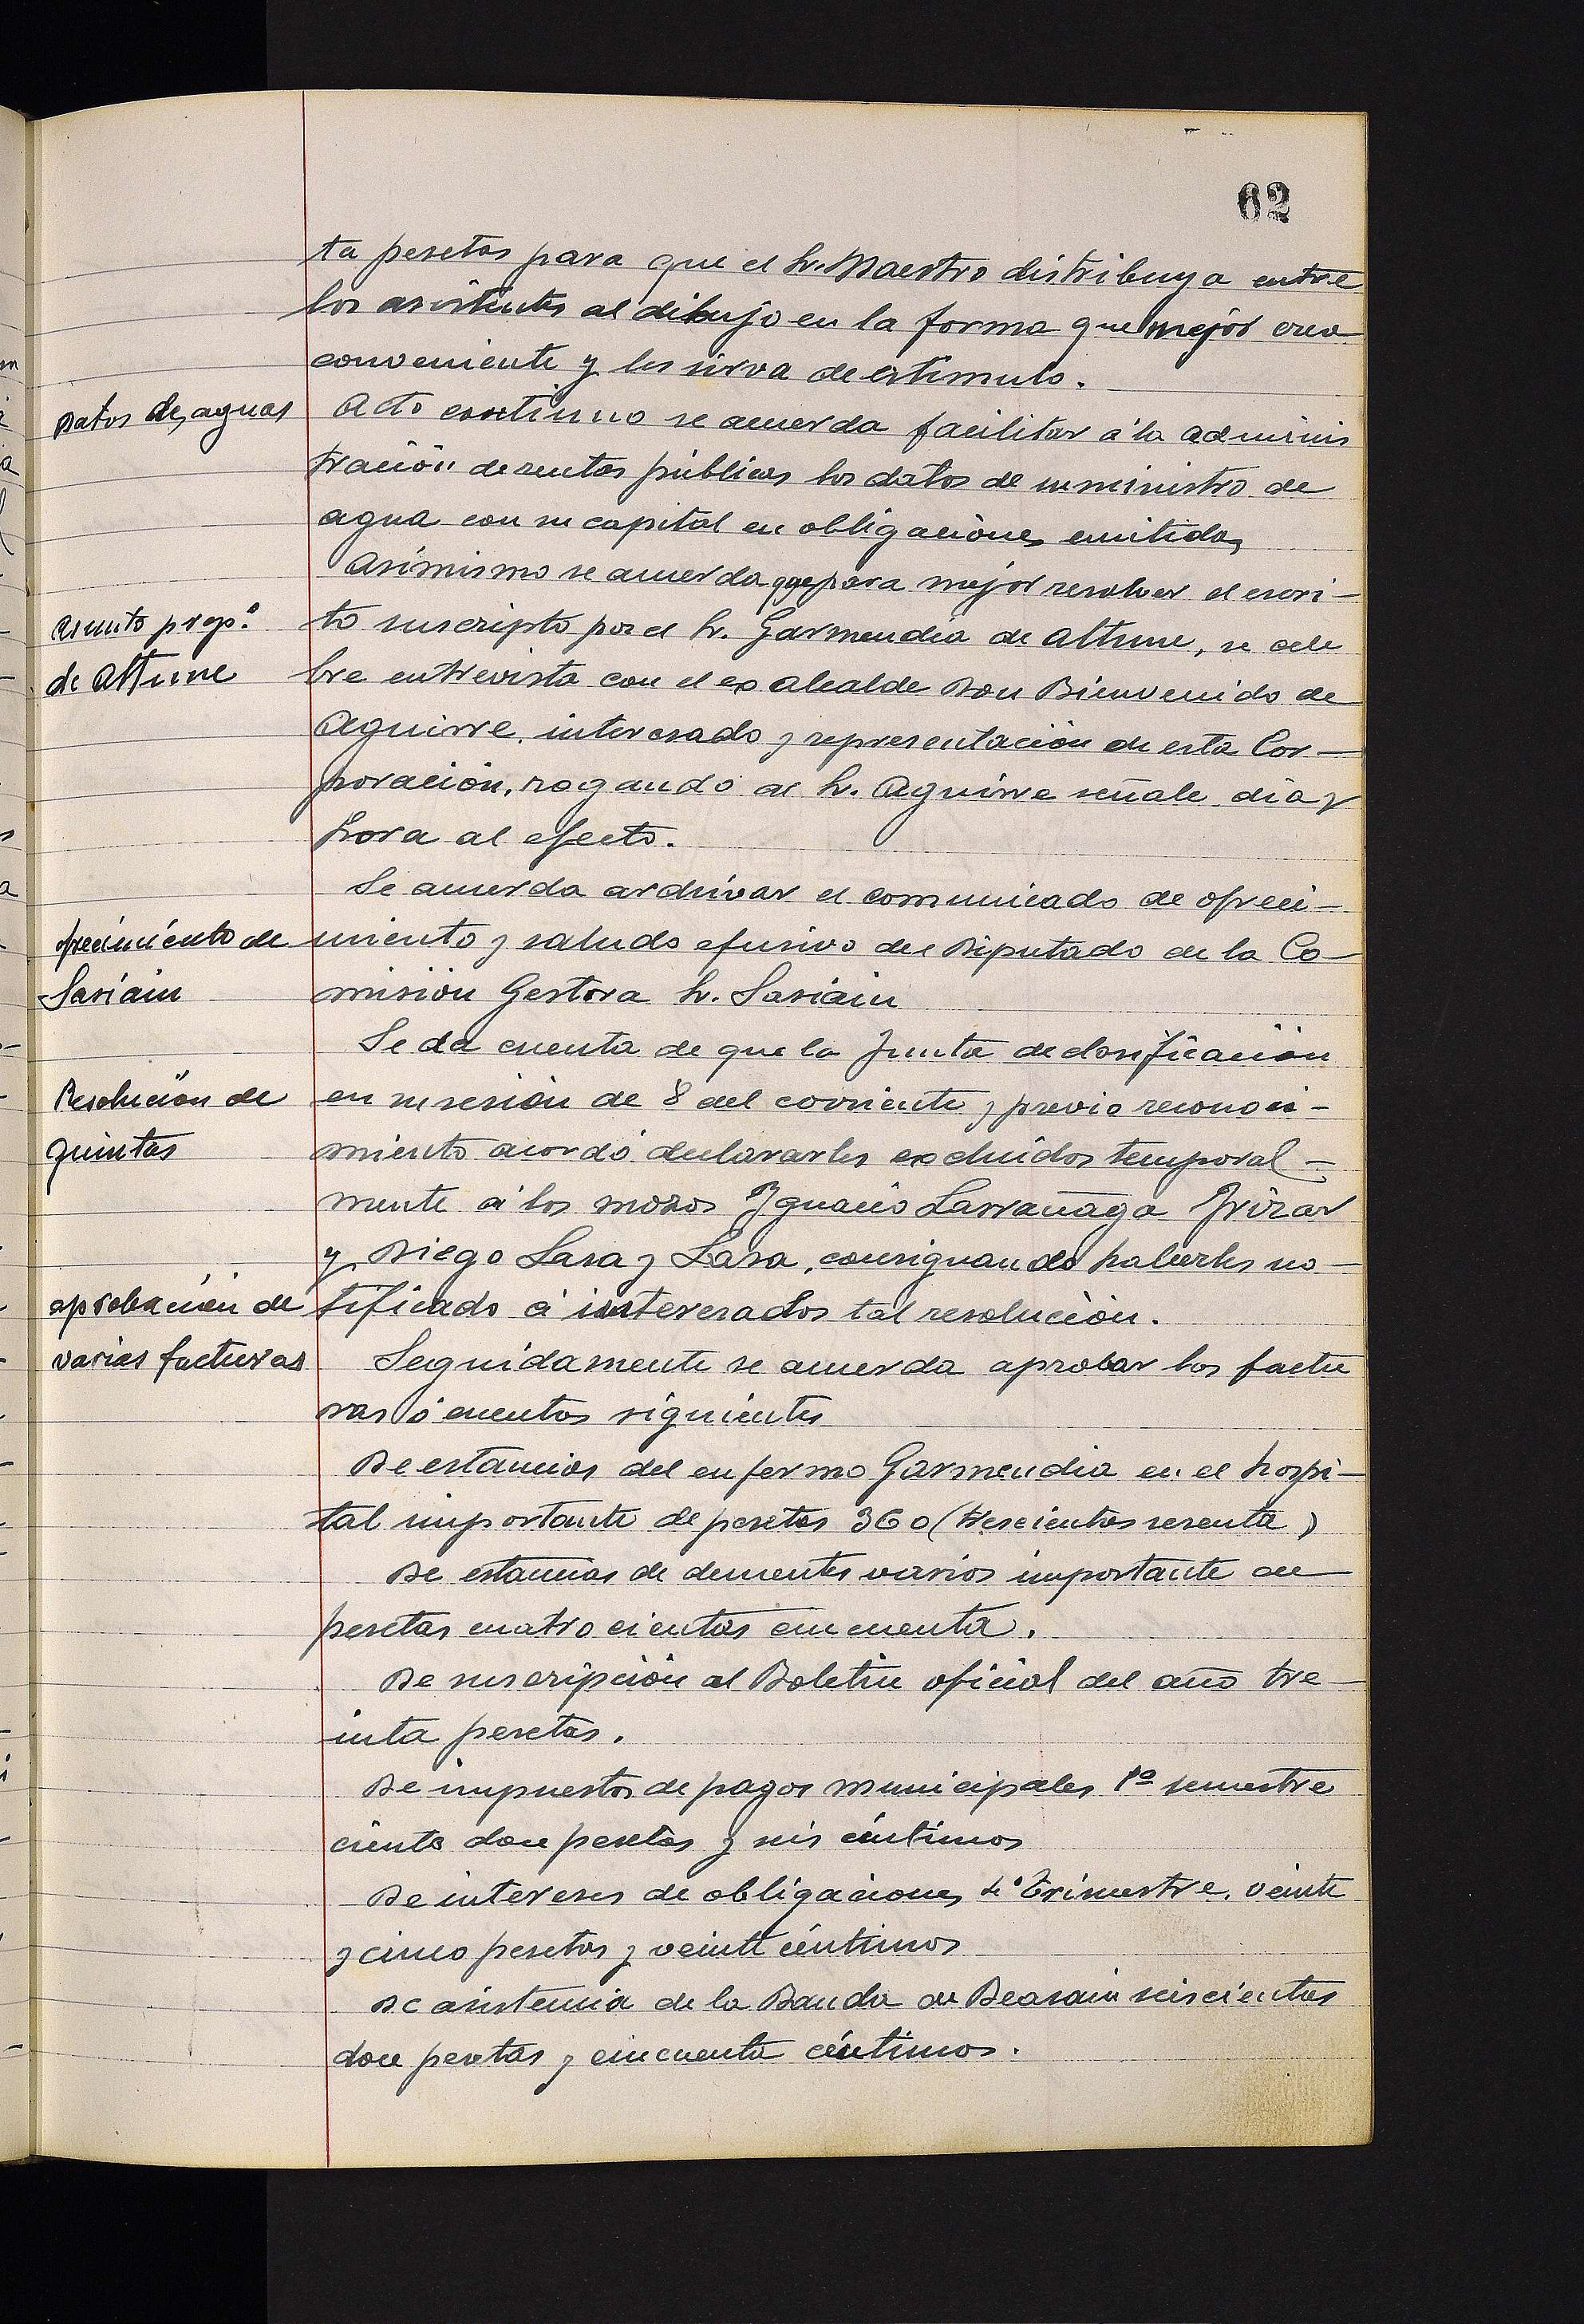 62
ta pesetas para que el Sr. Maestro distribuya entre
los asistentes al dibujo en la forma que mejor crea
conveniente y les sirva de estímulo.
Datos de aguas
Acto continuo se acuerda facilitar á la adminis
tración de rentas públicas los datos de suministro de
agua con su capital en obligaciones emitidas
Asimismo se acuerda que para mejor resolver el escri-
asunto prop.º
de Altune
to suscripto por el Sr. Garmendia de Altune, se cele
bre entrevista con el ex alcalde Don Bienvenido de
Aguirre, interesado y representación de esta Cor-
poración, rogando al Sr. Aguirre señale día y
hora al efecto.
Se acuerda archivar el comunicado de ofreci-
ofrecimiento de
Sasiain
miento y saludo efusivo del Diputado de la Co-
misión Gestora Sr. Sasiain
Se da cuenta de que la Junta de clasificación
Resolución de
quintas
en su sesión de 8 del corriente y previo reconoci-
miento acordó declararles excluídos temporal-
mente á los mozos Ignacio Larrañaga Irizar
y Diego Lasa y Lasa, consignando haberles no-
aprobación de
varias facturas
tificado á interesados tal resolución.
Seguidamente se acuerda aprobar las factu
ras ó cuentas siguientes
De estancias del enfermo Garmendia en el hospi-
tal importante de pesetas 360 (trescientas sesenta)
De estancias de dementes varios importante de
pesetas cuatrocientas cincuenta.
De suscripción al Boletin oficial del año tre-
inta pesetas.
De impuestos de pagos municipales 1º semestre
ciento doce pesetas y seis céntimos
De intereses de obligaciones 4º Trimestre, veinte
y cinco pesetas y veinte céntimos
De asistencia de la Banda de Beasain seiscientas
doce pesetas y cincuenta céntimos.